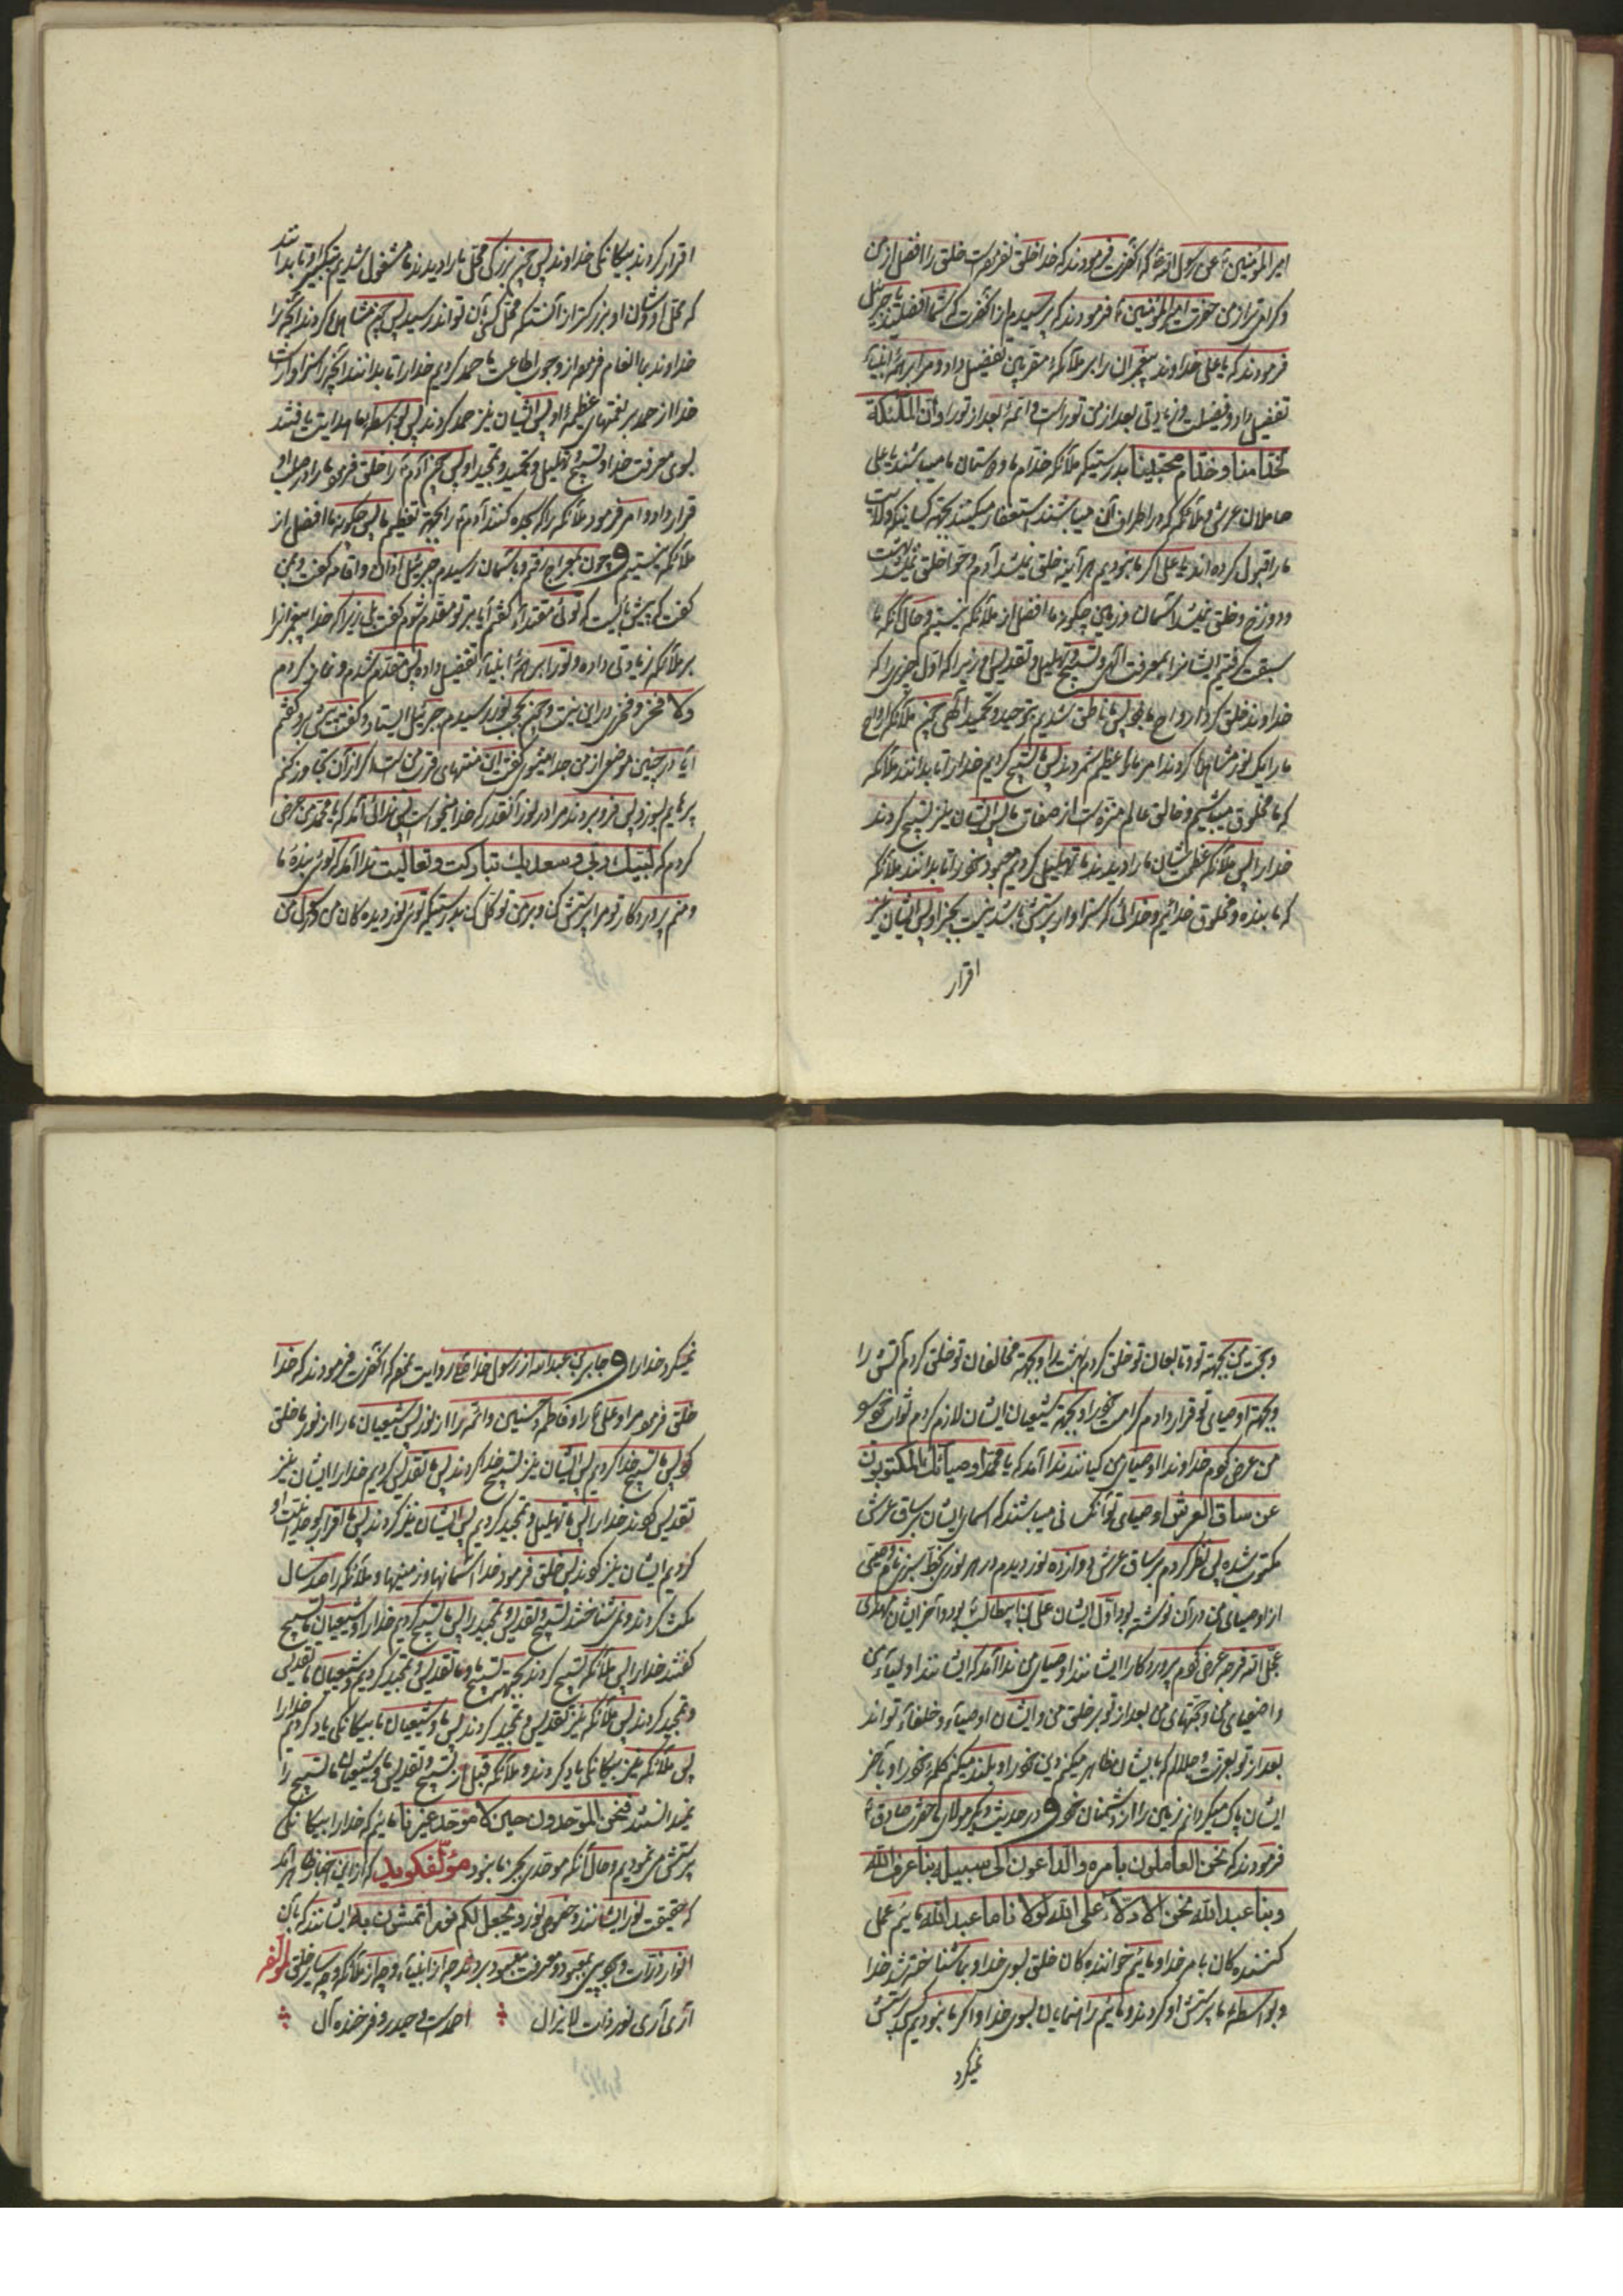 امیرالمؤمنین ع عن رسول الله ص که آنحضرت فرمودند که خدا خلق نفرموده است خلق را افضل از من
و کرامی‌تر از من حضرت امیرالمؤمنین ع فرمودند که پرسیدم از آنحضرت که شما افضلید یا جبرئیل
فرمودند که یا علی خداوند پیغمبران را بر ملائکه مقربین تفضیل داده و مرا بر همه انبیاء
تفضیل داد و فضیلت و زیادتی بعد از من توراست و ائمه بعد از تو را و ان الملئکة
لخدّامنا و خدّام محبّینا بدرستیکه ملائکه خدام ما و دوستان ما میباشند یا علی
حاملان عرش و ملائکه که در اطراف آن میباشند استغفار میکنند بجهة کسانیکه ولایت
ما را قبول کرده‌اند یا علی اگر ما نبودیم هر آینه خلق نمیشد آدم و حوا و خلق نمیشد بهشت
و دوزخ و خلق نمیشد آسمان و زمین چکونه ما افضل از ملائکه نیستیم و حال آنکه ما
سبقت گرفتیم ایشانرا بمعرفت الهی و تسبیح و تهلیل و تقدیس او زیرا که اوّل چیزی را که
خداوند خلق کرد ارواح ما بود پس ما ناطق شدیم بتوحید و تحمید الهی چون ملائکه ارواح
ما را یک نور مشاهده کردند امر ما را عظیم شمردند پس ما تسبیح کردیم خدا را تا بدانند ملائکه
که ما مخلوق میباشیم و خالق عالم منزه است از صفات ما پس ایشان نیز تسبیح کردند
خدا را پس ملائکه عظمت شان ما را دیدند ما تهلیل کردیم معبود خود را تا بدانند ملائکه
که ما بنده و مخلوق خدائیم و خدائی که سزاوار پرستش باشد نیست بجز او پس ایشان نیز
اقرار
اقرار کردند بیکانکی خداوند پس چون بزرکی محل ما را دیدند ما مشغول شدیم بتکبیر او تا بدانند
که محل او و شان او بزرکتر از آنست که محل کسی بآن تواند رسید پس چون مشاهده کردند آنچه را
خداوند بما انعام فرموده از وجوب اطاعت ما حمد کردیم خدا را تا بدانند آنچه را سزاوار است
خدا از حمد بر نعمتهای عظیمه او پس ایشان نیز حمد کردند پس بواسطه ما هدایت یافتند
بسوی معرفت خدا و تسبیح و تهلیل و تحمید و تمجید او پس چون آدم ع را خلق فرمود ما را در صلب او
قرار داد و امر فرمود ملائکه را که سجده کنند آدم ع را بجهة تعظیم ما پس چکونه ما افضل از
ملائکه نیستیم و چون بمعراج رفتم و بآسمان رسیدم جبرئیل اذان و اقامه کفت و بمن
کفت که پیش بایست که توئی مقتدا کفتم آیا بر تو مقدم شوم کفت بلی زیرا که خدا پیغمبرانرا
بر ملائکه زیادتی داده و تو را بر همه انبیاء تفضیل داده پس مقدم شدم و نماز کردم
ولا فخر و فخری در این نیست و چون بحجب نور رسیدم جبرئیل ایستاد و کفت پیش برو کفتم
آیا در چنین موضع از من جدا میشوی کفت این منتهای قرب من است اگر از آن تجاوز کنم
پرهایم بسوزد پس فرو بردند مرا در نور آنقدر که خدا میخواست پس ندائی آمد که یا محمد من عرض
کردم که لبّیك ربّی و سعدیك تبارکت و تعالیت ندا آمد که توئی بنده ما
و منم پروردکار تو مرا پرستش کن و بر من توکل کن بدرستیکه توئی نور دیده کان من
و حجت من بجهة تو و تابعان تو خلق کردم بهشت را و بجهة مخالفان تو خلق کردم آتش را
و بجهة اوصیای تو قرار دادم کرامت خود را و بجهة شیعیان ایشان لازم کردم ثواب خود
من عرض کردم خداوندا اوصیای من کیانند ندا آمد که یا محمد اوصیائك المکتوبون
عن ساق العرش اوصیای تو آنکسانی میباشند که اسمای ایشان بر ساق عرش
مکتوب شده پس نظر کردم بر ساق عرش دوازده نور دیدم در هر نوری بخط سبزی نام وصیّی
از اوصیای من در آن نوشته بود اول ایشان علی بن ابیطالب بود و آخر ایشان مهدی
عجّل الله فرجه عرض کردم پروردکارا ایشانند اوصیای من ندا آمد که ایشانند اولیاء من
و اصفیای من و حجّتهای من بعد از تو بر خلق من و ایشان اوصیاء و خلفاء تواند
بعد از تو بعزت و جلالم که بایشان ظاهر میکنم دین خود را و بلند میکنم کلمه خود را و بآخر
ایشان پاک میکردانم زمین را از دشمنان خود و در حدیث دیگر مولای ما حضرت صادق ع
فرمودند که نحن العاملون بامره و الداعون الی سبیله بنا عرف الله
و بنا عبد الله نحن الادلّاء علی الله لولانا ما عبد الله مائیم عمل
کننده کان بامر خدا و مائیم خواننده کان خلق بسوی خدا و بما شناخته شد خدا
و بواسطه ما پرستش او کردند و مائیم راهنمایان بسوی خدا و اگر ما نبودیم کسی پرستش
نمیکرد
نمیکرد خدا را و جابر بن عبدالله از رسول خدا ص روایت نموده که آنحضرت فرمودند که خدا
خلق فرمود مرا و علی ع را و فاطمه و حسنین و ائمه را از نور پس شیعیان ما را از نور ما خلق
کرد پس ما تسبیح خدا کردیم پس ایشان نیز تسبیح خدا کردند پس ما تقدیس کردیم خدا را ایشان نیز
تقدیس کردند خدا را پس ما تهلیل و تمجید کردیم پس ایشان نیز کردند پس ما اقرار بوحدانیت او
کردیم ایشان نیز کردند پس خلق فرمود خدا آسمانها و زمینها و ملائکه را صد سال
مکث کردند و نمی شناختند تسبیح و تقدیس و تمجید را پس ما تسبیح کردیم خدا را و شیعیان ما تسبیح
کفتند خدا را پس ملائکه تسبیح کردند بجهة تسبیح ما و ما تقدیس و تمجید کردیم و شیعیان ما تقدیس
و تمجید کردند پس ملائکه نیز تقدیس و تمجید کردند پس ما و شیعیان ما بیکانکی یاد کردیم خدا را
پس ملائکه نیز بیکانکی یاد کردند و ملائکه قبل از تسبیح و تقدیس ما و شیعیان ما تسبیح را
نمیدانستند فنحن الموحّدون حین لا موحّد غیرنا مائیم که خدا را بیکانکی
پرستش می نمودیم و حال آنکه موحدی بجز ما نبود مؤلف کوید که از این اخبار ظاهر آمد
که حقیقت نور ایشانند و خصوص نور و یجعل لکم نورا تمشون به ایشانند که بآن
انوار ذرات وجود پی بمعبود و معرفت معبود بردند چه از انبیاء و چه از ملائکه و چه سایر خلق لمؤلفه
آری آری نور ذات لایزال احمد است و حیدر و فرخنده آل